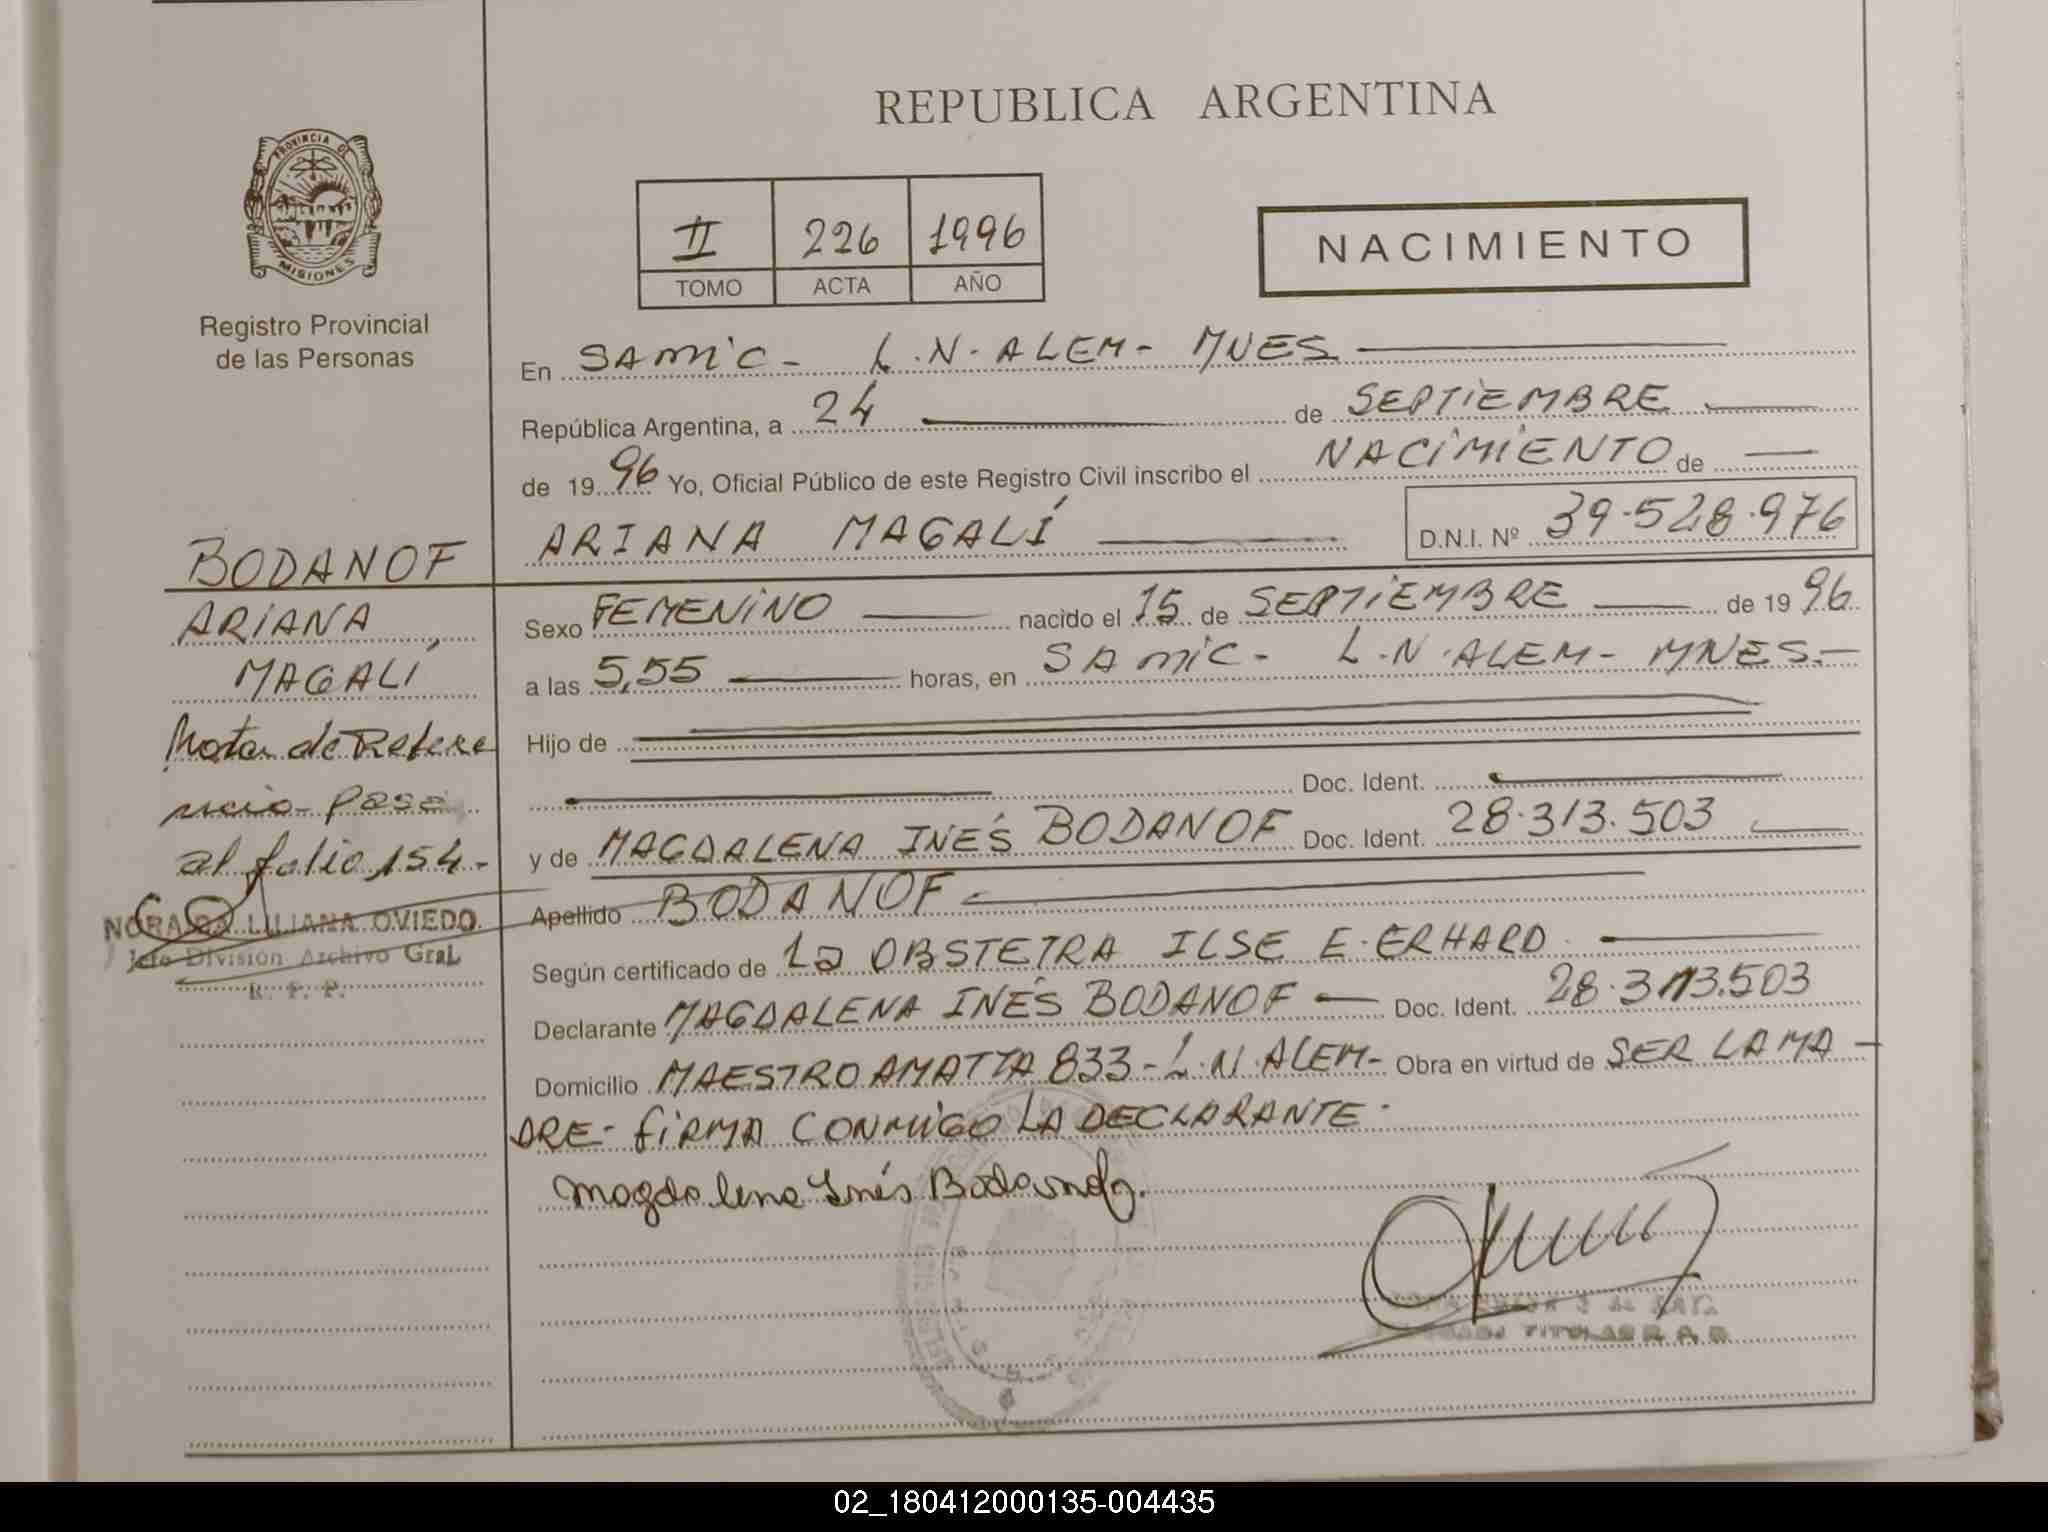 REPUBLICA ARGENTINA
PROVINCIA DE
MISIONES
Registro Provincial
de las Personas
II 226 1996
TOMO ACTA AÑO
NACIMIENTO
En SAMIC - L.N. ALEM - MNES
República Argentina, a 24 de SEPTIEMBRE
de 1996 Yo, Oficial Público de este Registro Civil inscribo el NACIMIENTO de
ARIANA MAGALÍ D.N.I. Nº 39.528.976
BODANOF
ARIANA
MAGALÍ
Notar de Refere
ncia Pasa
al folio 154.-
NORAIDA LILIANA OVIEDO
Jefe División Archivo Gral.
R. P. P.
Sexo FEMENINO nacido el 15 de SEPTIEMBRE de 1996
a las 5,55 horas, en SAMIC - L.N. ALEM - MNES.-
Hijo de
Doc. Ident.
y de MAGDALENA INÉS BODANOF Doc. Ident. 28.313.503
Apellido BODANOF
Según certificado de la OBSTETRA ILSE E. ERHARD.
Declarante MAGDALENA INÉS BODANOF Doc. Ident. 28.313.503
Domicilio MAESTRO AMATTA 833 - L.N. ALEM - Obra en virtud de SER LA MA -
DRE - FIRMA CONMIGO LA DECLARANTE -
Magdalena Inés Bodanof.
02_180412000135-004435